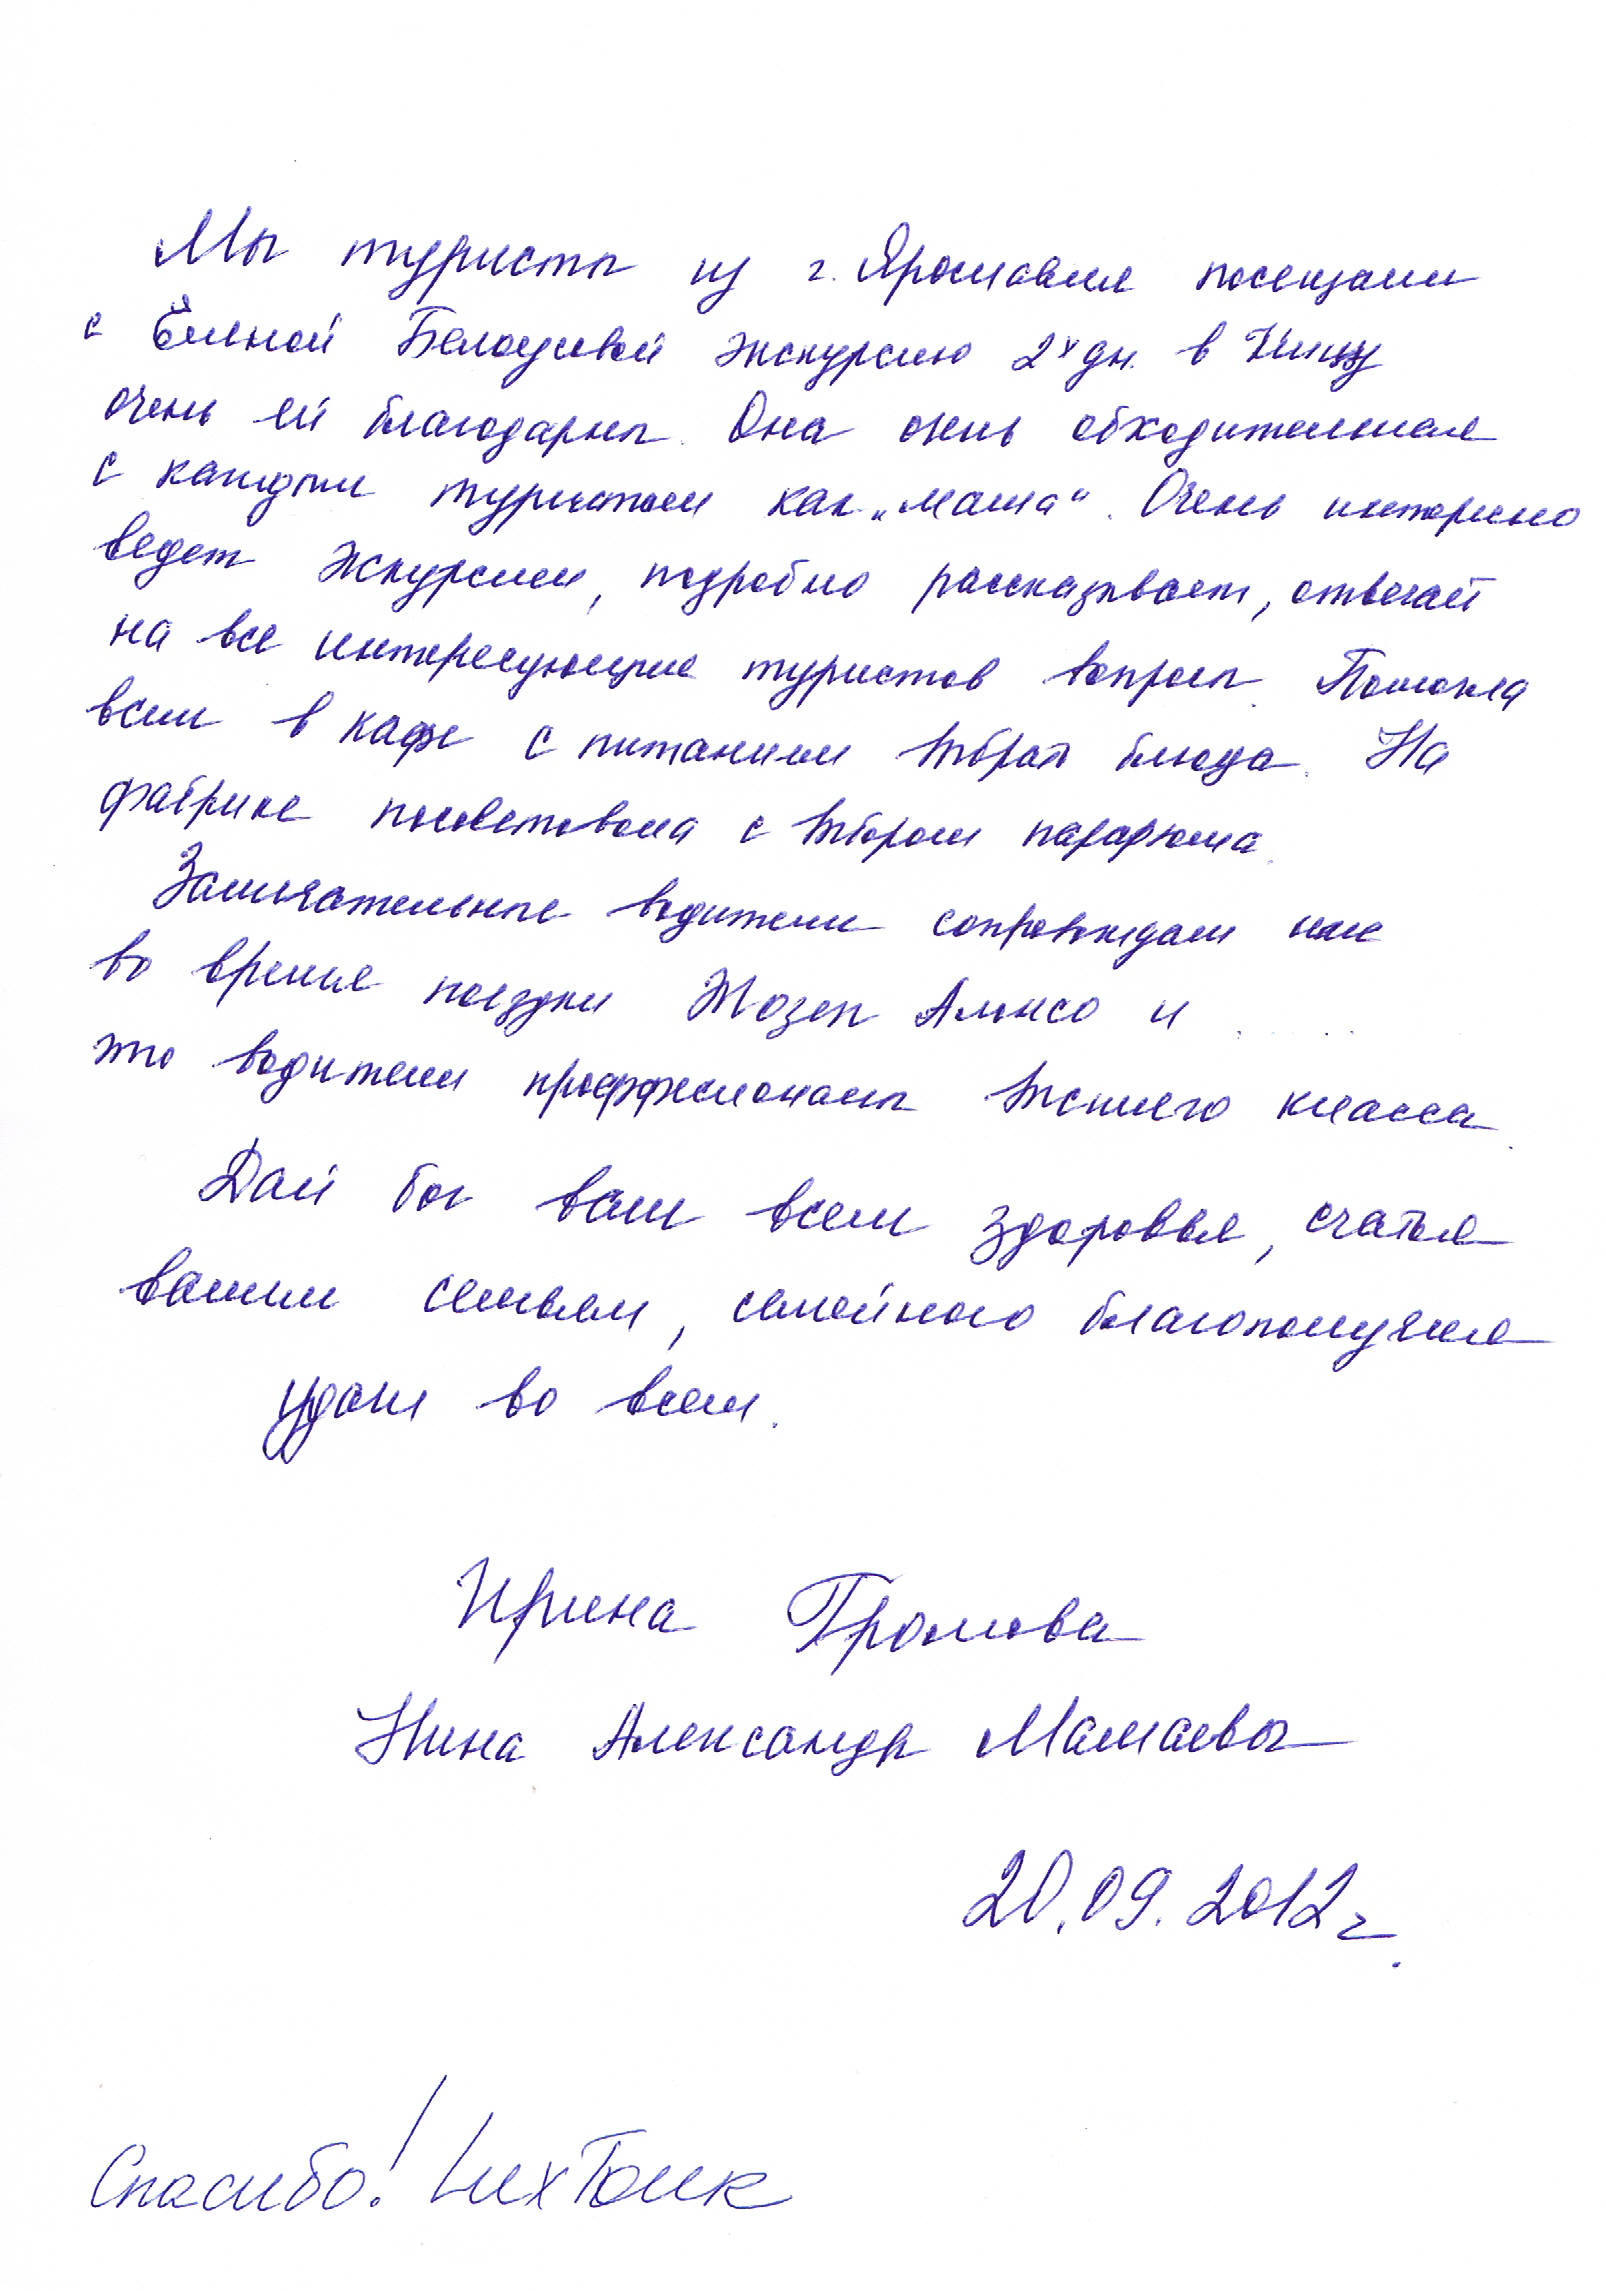 Мы туристы из г. Ярославля посещали
с Еленой Белоусовой экскурсию 2х дн. в Ниццу
очень ей благодарны. Она очень обходительная
с каждым туристом как „мама“. Очень интересно
ведет экскурсии, подробно рассказывает, отвечает
на все интересующие туристов вопросы. Помогла
всем в кафе с питанием выбрать блюда. На
фабрике посоветовала с выбором парфюма.
Замечательные водители сопровождали нас
во время поездки Жозеп Алонсо и
это водители профессионалы высшего класса.
Дай бог вам всем здоровья, счастья
вашим семьям, семейного благополучия
удачи во всем.
Ирина Громова
Нина Александр Мамаевы
20.09.2012 г.
Спасибо!